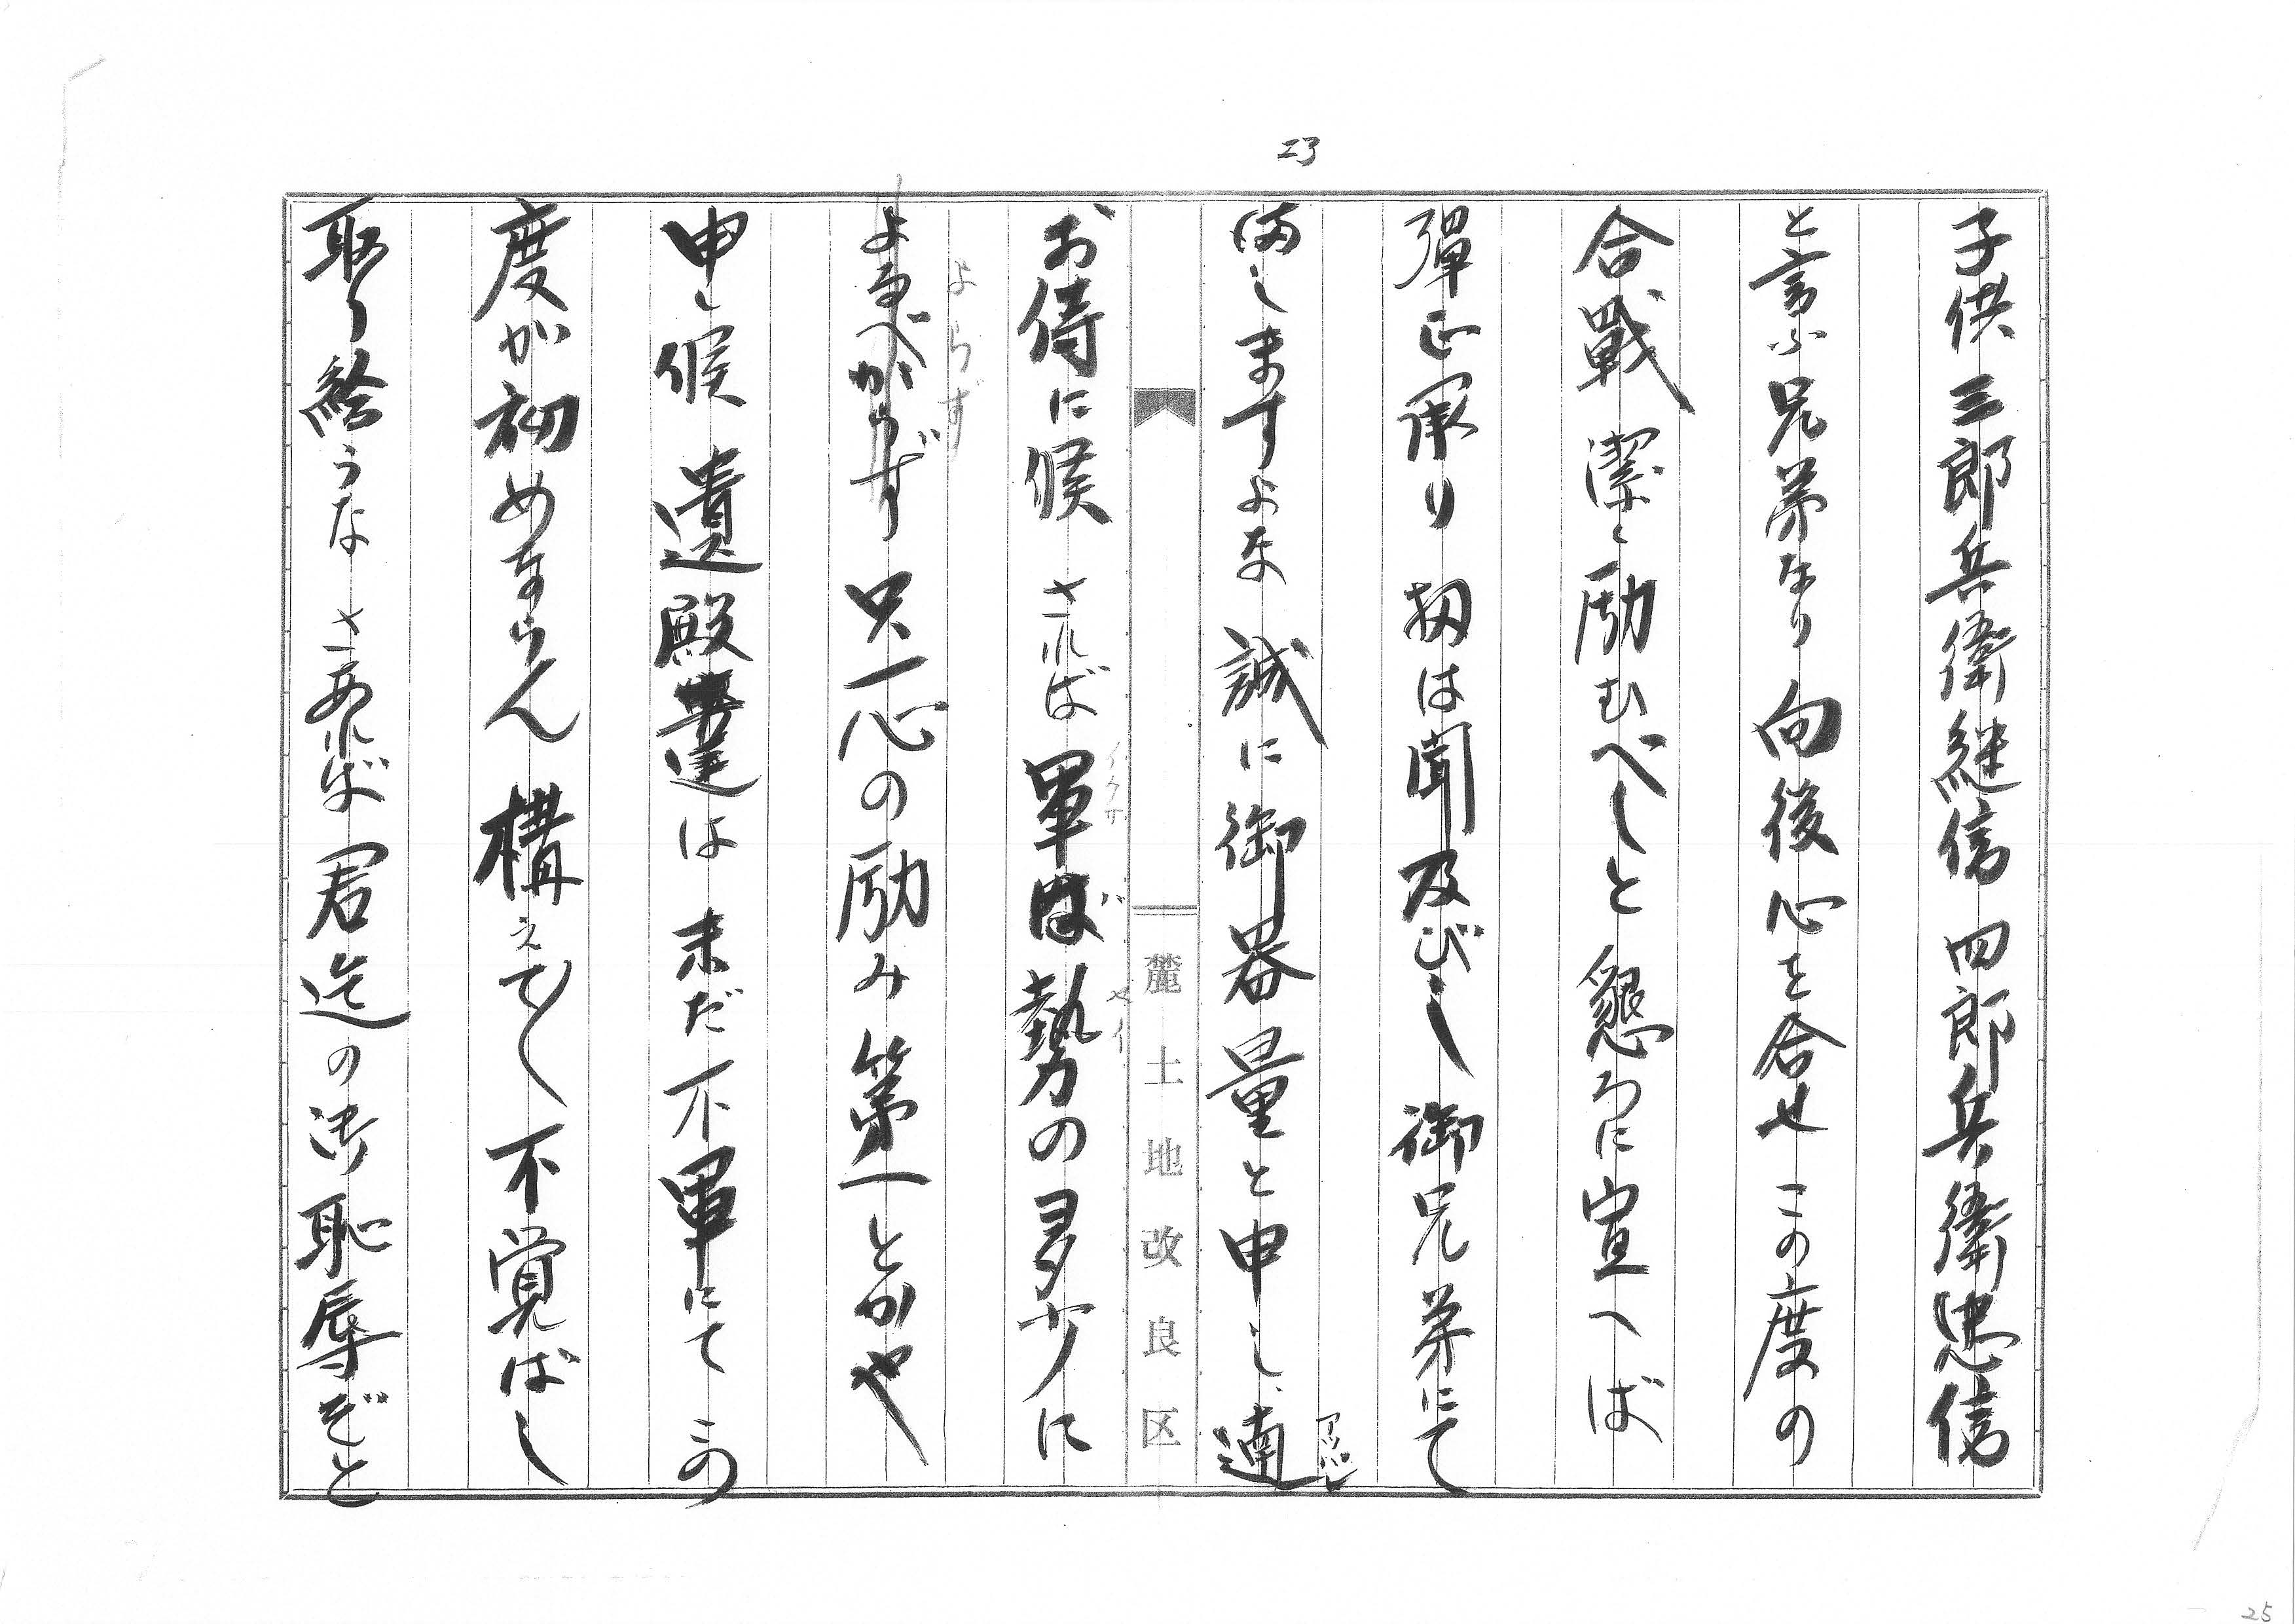 23
子供三郎兵衛継信四郎兵衛忠信
と言ふ兄弟なり向後心を合せこの度の
合戦潔く励むべしと懇ろに宣へば
彈正承り扨は聞及びし御兄弟にて
ましますよな誠に御器量と申し、遖
アッパレ
お侍に候されば軍は勢の多少に
イクサ
セイ
よるべからず只一心の励み第一とかや
よらず
申し候遺殿達は未だ不軍にてこの
度が初めならん構えて〱不覚ばし
取り給うなさあれば君迄の御恥辱ぞと
麓土地改良区
25